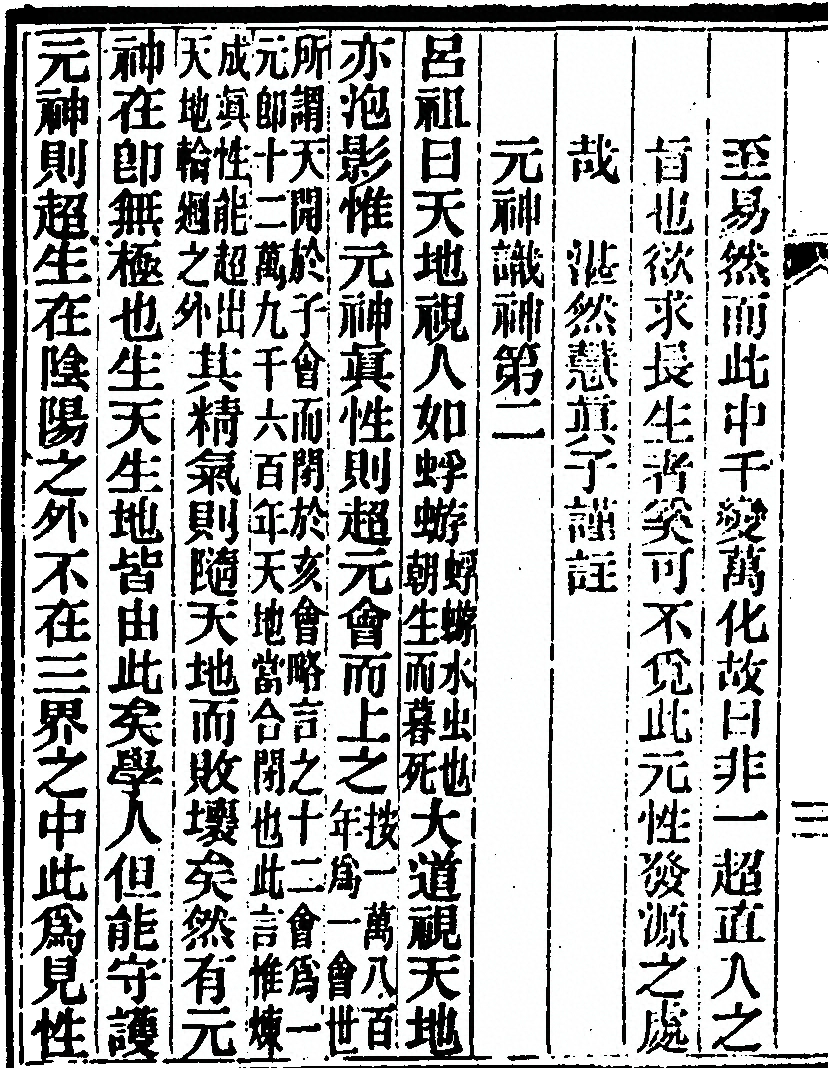 至易然而此中千變萬化故曰非一超直入之
旨也欲求長生者奚可不覓此元性發源之處
哉　湛然慧眞子謹註
元神識神第二
呂祖曰天地視人如蜉蝣蜉蝣水虫也朝生而暮死大道視天地
亦泡影惟元神眞性則超元會而上之按一萬八百年爲一會世
所謂天開於子會而閉於亥會略言之十二會爲一元卽十二萬九千六百年天地當合閉也此言惟煉
成眞性能超出天地輪廻之外其精氣則隨天地而敗壞矣然有元
神在卽無極也生天生地皆由此矣學人但能守護
元神則超生在陰陽之外不在三界之中此爲見性